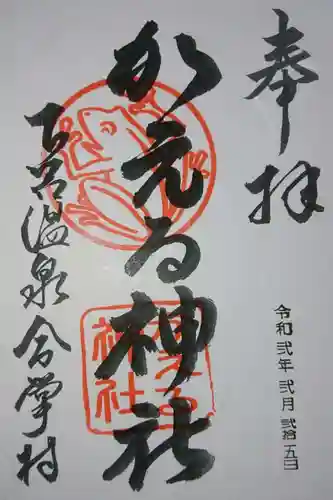 奉拝
令和弐年 弐月 弐拾五日
かえる神社
下呂温泉合掌村